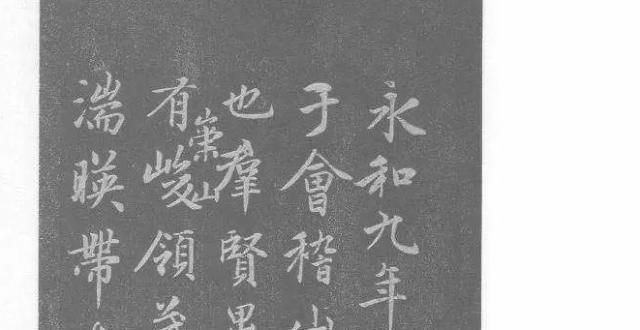 永和九年
于會稽
也羣賢
有崇山峻領
湍暎帶